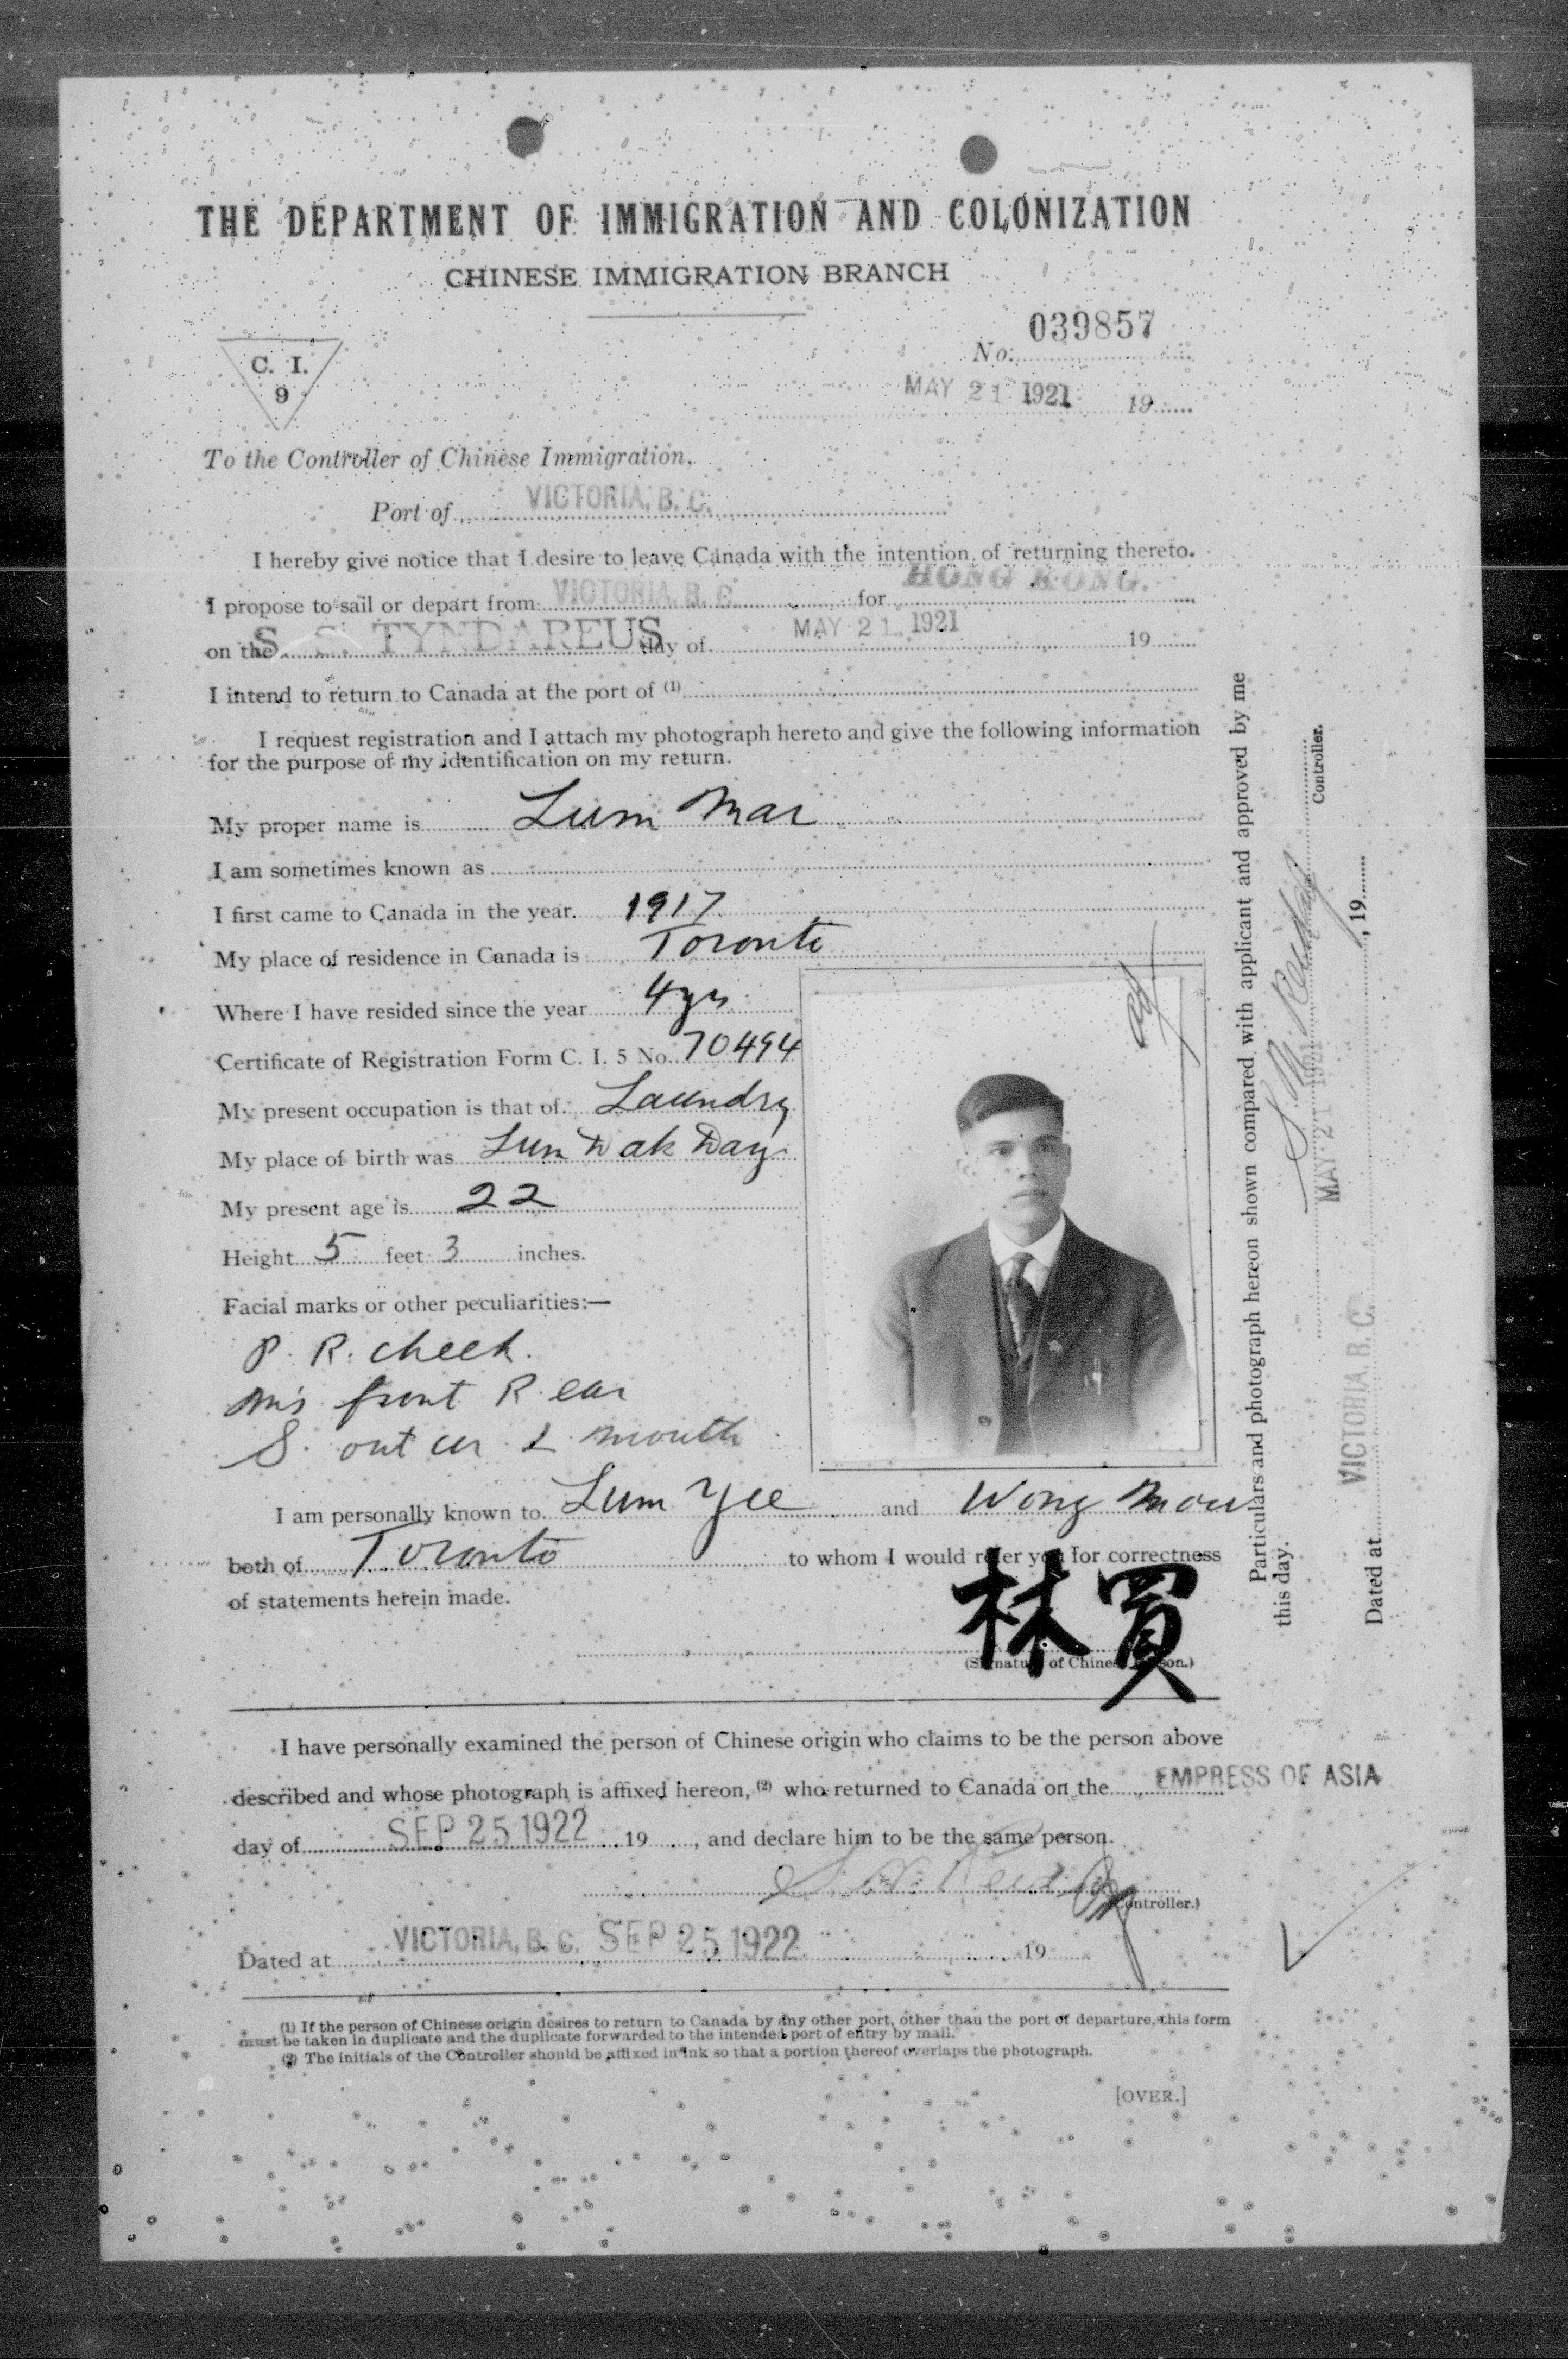 THE DEPARTMENT OF IMMIGRATION AND COLONIZATION
CHINESE IMMIGRATION BRANCH
C. I.
9
No. 039857
MAY 21 1921 19
To the Controller of Chinese Immigration,
Port of VICTORIA, B. C.
I hereby give notice that I desire to leave Canada with the intention of returning thereto.
I propose to sail or depart from VICTORIA, B. C. for HONG KONG.
on the S. S. TYNDAREUS day of MAY 21 1921 19
I intend to return to Canada at the port of (1)
I request registration and I attach my photograph hereto and give the following information
for the purpose of my identification on my return.
My proper name is Lum Mar
I am sometimes known as
I first came to Canada in the year 1917
My place of residence in Canada is Toronto
Where I have resided since the year 4 yrs
Certificate of Registration Form C. I. 5 No. 70494
My present occupation is that of Laundry
My place of birth was Lun Dak Day
My present age is 22
Height 5 feet 3 inches.
Facial marks or other peculiarities:—
P. R. cheek.
front R. ear
S. out cor L mouth
I am personally known to Lum Yee and Wong Mow
both of Toronto to whom I would refer you for correctness
of statements herein made.
林買
(Signature of Chinese Person.)
I have personally examined the person of Chinese origin who claims to be the person above
described and whose photograph is affixed hereon, (2) who returned to Canada on the EMPRESS OF ASIA
day of SEP 25 1922 19 , and declare him to be the same person.
(Controller.)
Dated at VICTORIA, B. C. SEP 25 1922 19
(1) If the person of Chinese origin desires to return to Canada by any other port, other than the port of departure, this form
must be taken in duplicate and the duplicate forwarded to the intended port of entry by mail.
(2) The initials of the Controller should be affixed in ink so that a portion thereof overlaps the photograph.
[OVER.]
Particulars and photograph hereon shown compared with applicant and approved by me
this day.
Controller.
MAY 21 1921
Dated at VICTORIA, B. C. , 19